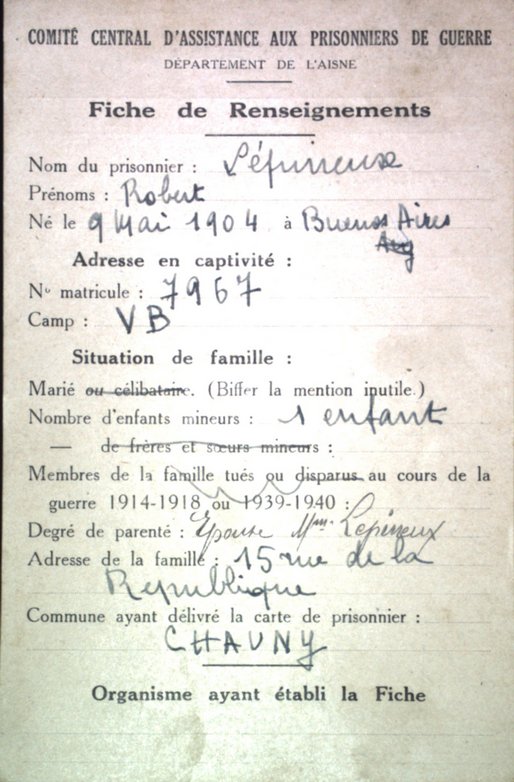 COMITÉ CENTRAL D'ASSISTANCE AUX PRISONNIERS DE GUERRE
DÉPARTEMENT DE L'AISNE
Fiche de Renseignements
Nom du prisonnier :
Prénoms : Robert
Né le 9 Mai 1904 à Buenos Aires
Arg
Adresse en captivité :
No matricule : 7967
Camp : VB
Situation de famille :
Marié ou célibataire. (Biffer la mention inutile.)
Nombre d'enfants mineurs : 1 enfant
— de frères et sœurs mineurs :
Membres de la famille tués ou disparus au cours de la
guerre 1914-1918 ou 1939-1940 :
Degré de parenté : Epouse Mme
Adresse de la famille : 15 rue de la
Republique
Commune ayant délivré la carte de prisonnier :
CHAUNY
Organisme ayant établi la Fiche